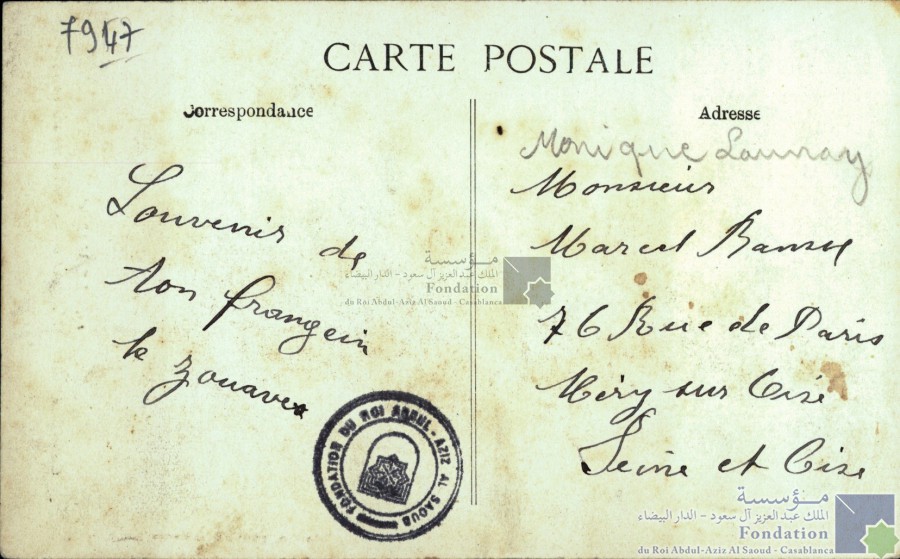 7947
CARTE POSTALE
Correspondance
Adresse
Monique Launay
Souvenir de
ton frangein
le zouave
Monsieur
Marcel
76 Rue de Paris
Méry sur Oise
Seine et Oise
مؤسسة
الملك عبد العزيز آل سعود - الدار البيضاء
Fondation
du Roi Abdul-Aziz Al Saoud - Casablanca
FONDATION DU ROI ABDUL-AZIZ AL SAOUD
مؤسسة
الملك عبد العزيز آل سعود - الدار البيضاء
Fondation
du Roi Abdul-Aziz Al Saoud - Casablanca